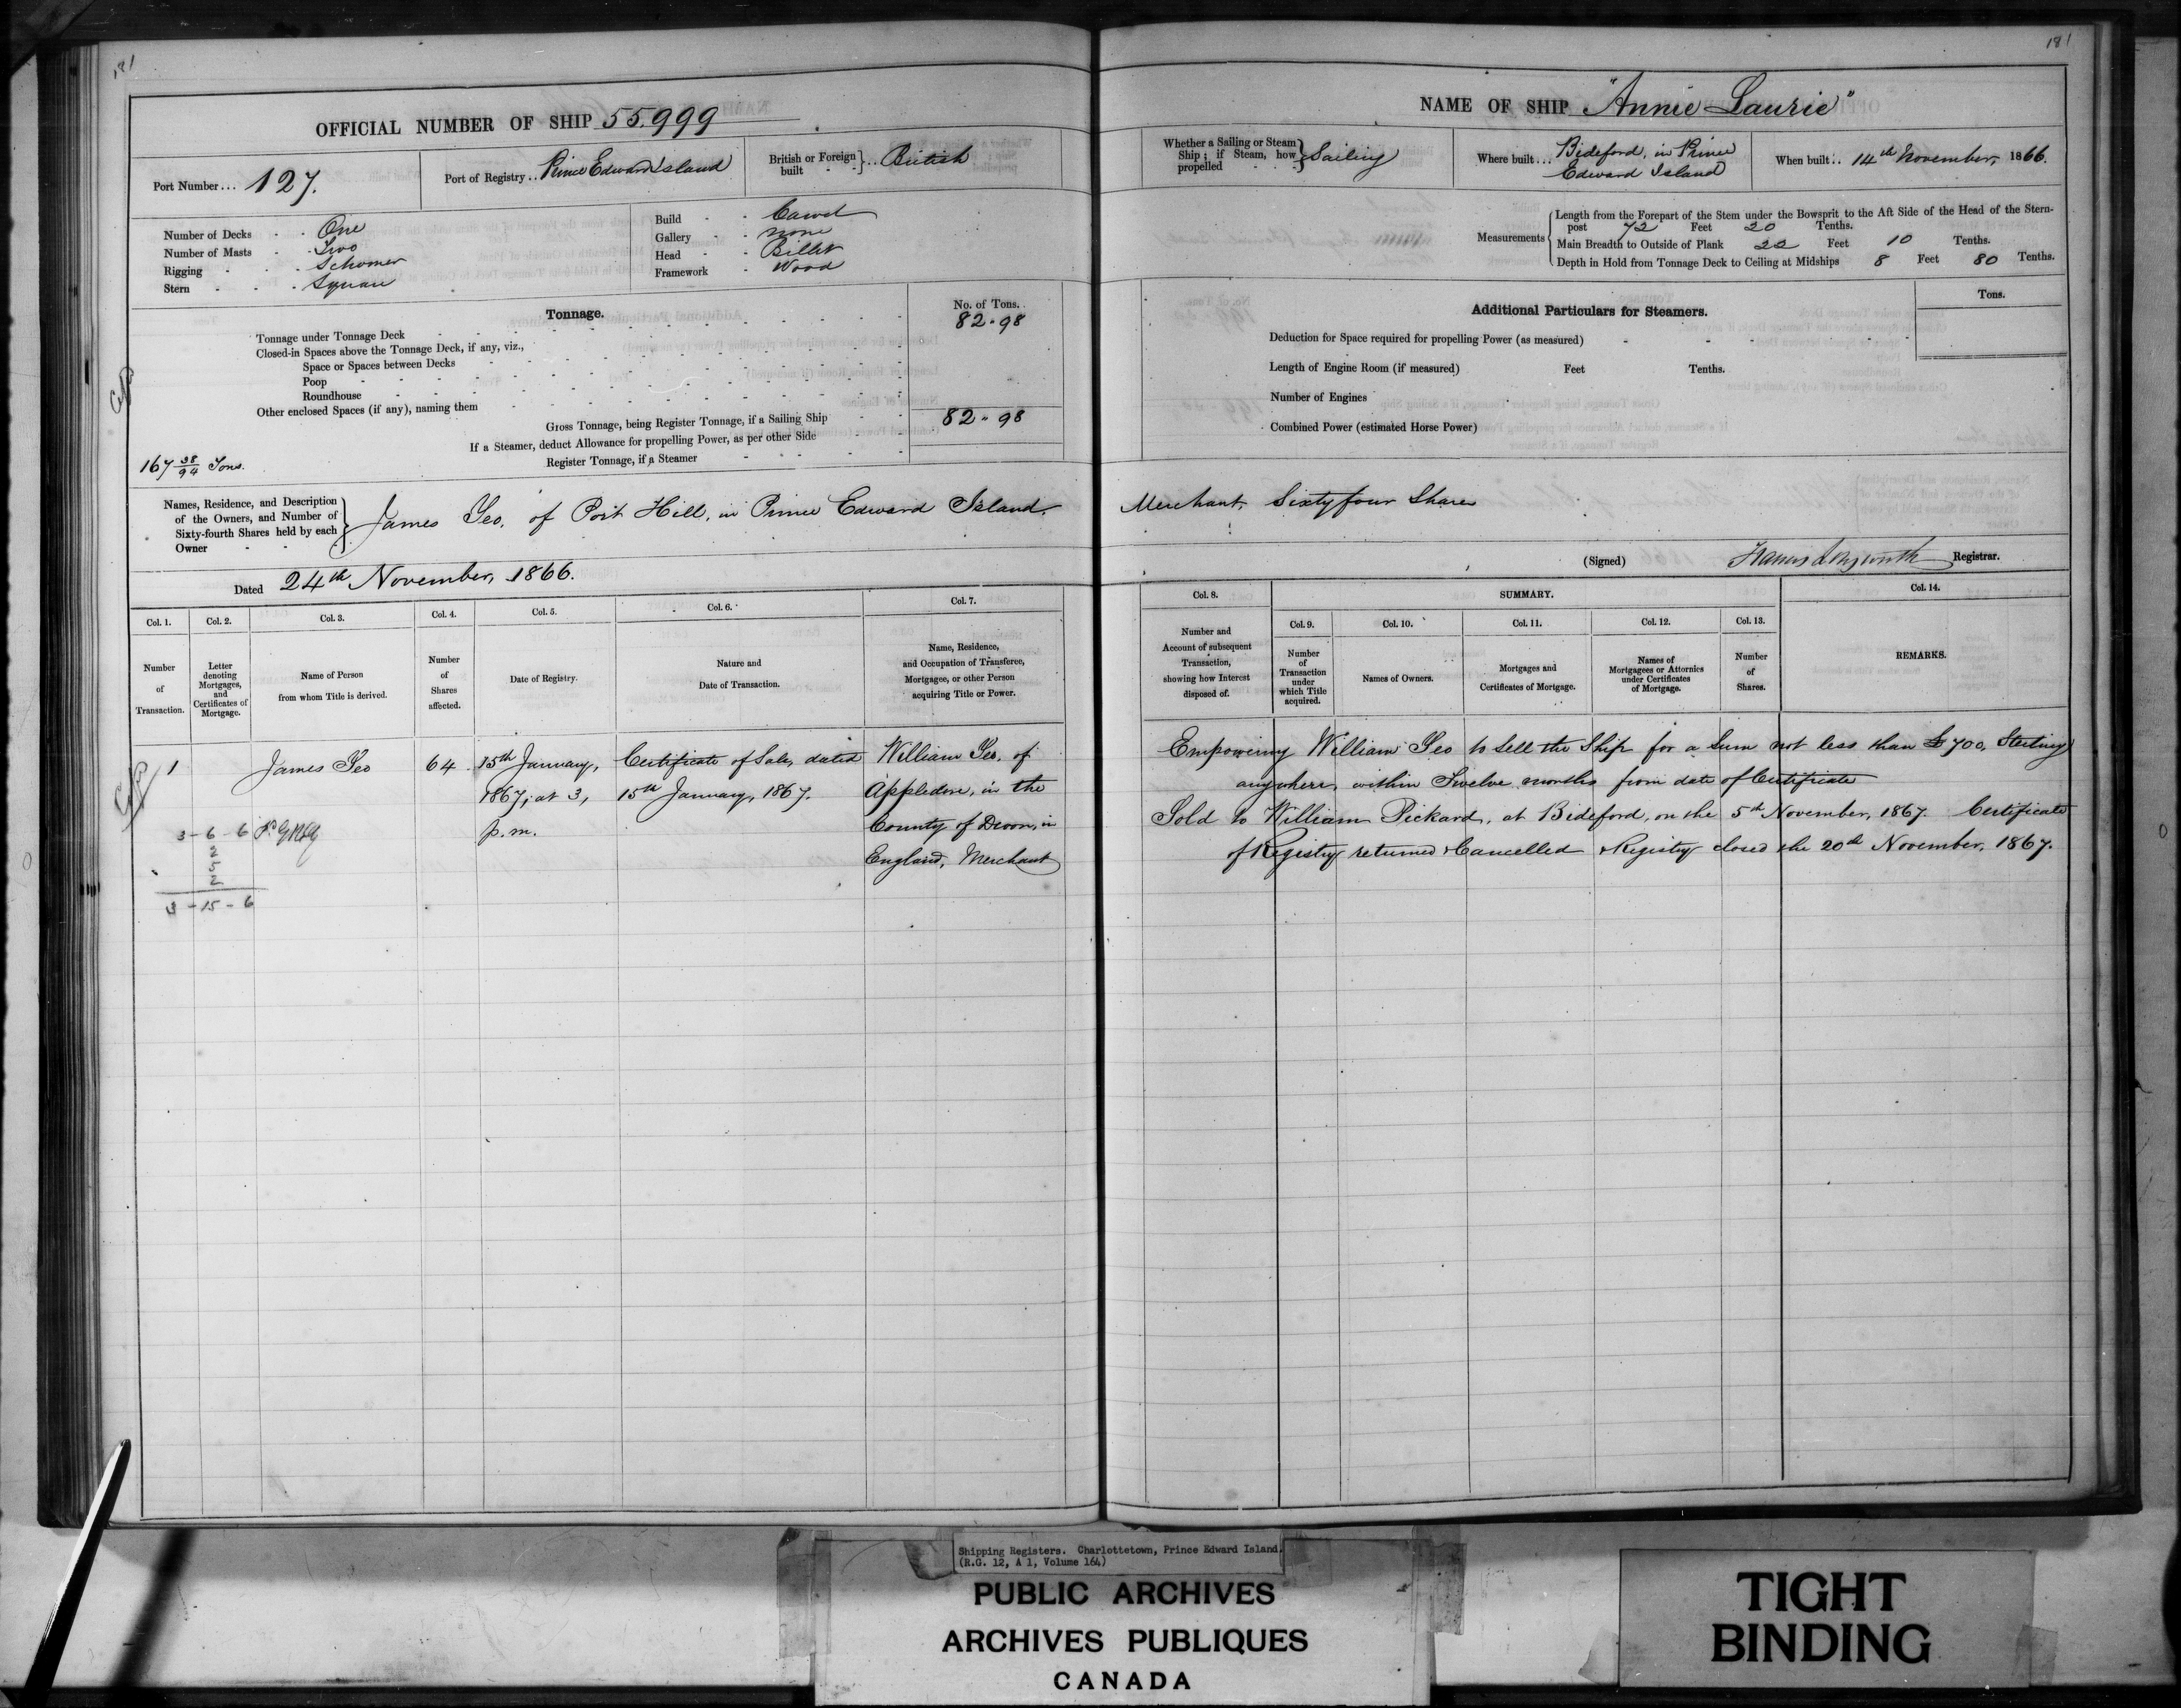 181
OFFICIAL NUMBER OF SHIP 55,999
Port Number... 127.
Port of Registry.. Prince Edward Island
British or Foreign built - - }.. British
Number of Decks - - One
Number of Masts - Two
Rigging - - - Schooner
Stern - - - Square
Build - - Carvel
Gallery - - none
Head - - Billet
Framework - Wood
Tonnage.
No. of Tons.
Tonnage under Tonnage Deck 82 - 98
Closed-in Spaces above the Tonnage Deck, if any, viz.,
Space or Spaces between Decks
Poop
Roundhouse
Other enclosed Spaces (if any), naming them
Gross Tonnage, being Register Tonnage, if a Sailing Ship 82 - 98
If a Steamer, deduct Allowance for propelling Power, as per other Side
Register Tonnage, if a Steamer
167 38/94 Tons.
Names, Residence, and Description
of the Owners, and Number of
Sixty-fourth Shares held by each
Owner - -
James Yeo, of Port Hill, in Prince Edward Island.
Dated 24th November, 1866.
Col. 1.
Number
of
Transaction.
Col. 2.
Letter
denoting
Mortgages,
and
Certificates of
Mortgage.
Col. 3.
Name of Person
from whom Title is derived.
Col. 4.
Number
of
Shares
affected.
Col. 5.
Date of Registry.
Col. 6.
Nature and
Date of Transaction.
Col. 7.
Name, Residence,
and Occupation of Transferee,
Mortgagee, or other Person
acquiring Title or Power.
1 James Yeo 64 15th January, Certificate of Sale, dated William Yeo, of
1867, at 3, 15th January, 1867. Appledore, in the
p.m. County of Devon, in
England, Merchant
3 - 6 - 6
2
5
2
3 - 15 - 6
181
NAME OF SHIP "Annie Laurie"
Whether a Sailing or Steam
Ship; if Steam, how
propelled - - - } Sailing
Where built... Bideford, in Prince
Edward Island
When built.. 14th November, 1866.
Measurements
Length from the Forepart of the Stem under the Bowsprit to the Aft Side of the Head of the Stern-
post 72 Feet 20 Tenths.
Main Breadth to Outside of Plank 22 Feet 10 Tenths.
Depth in Hold from Tonnage Deck to Ceiling at Midships 8 Feet 80 Tenths.
Additional Particulars for Steamers.
Tons.
Deduction for Space required for propelling Power (as measured)
Length of Engine Room (if measured) Feet Tenths.
Number of Engines
Combined Power (estimated Horse Power)
Merchant, Sixty four Shares
(Signed) Francis Longworth Registrar.
Col. 8.
Number and
Account of subsequent
Transaction,
showing how Interest
disposed of.
SUMMARY.
Col. 9.
Number
of
Transaction
under
which Title
acquired.
Col. 10.
Names of Owners.
Col. 11.
Mortgages and
Certificates of Mortgage.
Col. 12.
Names of
Mortgagees or Attornies
under Certificates
of Mortgage.
Col. 13.
Number
of
Shares.
Col. 14.
REMARKS.
Empowering William Yeo to sell the Ship for a Sum not less than £700, Sterling
anywhere, within Twelve months from date of Certificate
Sold to William Pickard, at Bideford, on the 5th November, 1867. Certificate
of Registry returned & Cancelled & Registry closed the 20th November, 1867.
Shipping Registers. Charlottetown, Prince Edward Island.
(R.G. 12, A 1, Volume 164)
PUBLIC ARCHIVES
ARCHIVES PUBLIQUES
CANADA
TIGHT
BINDING